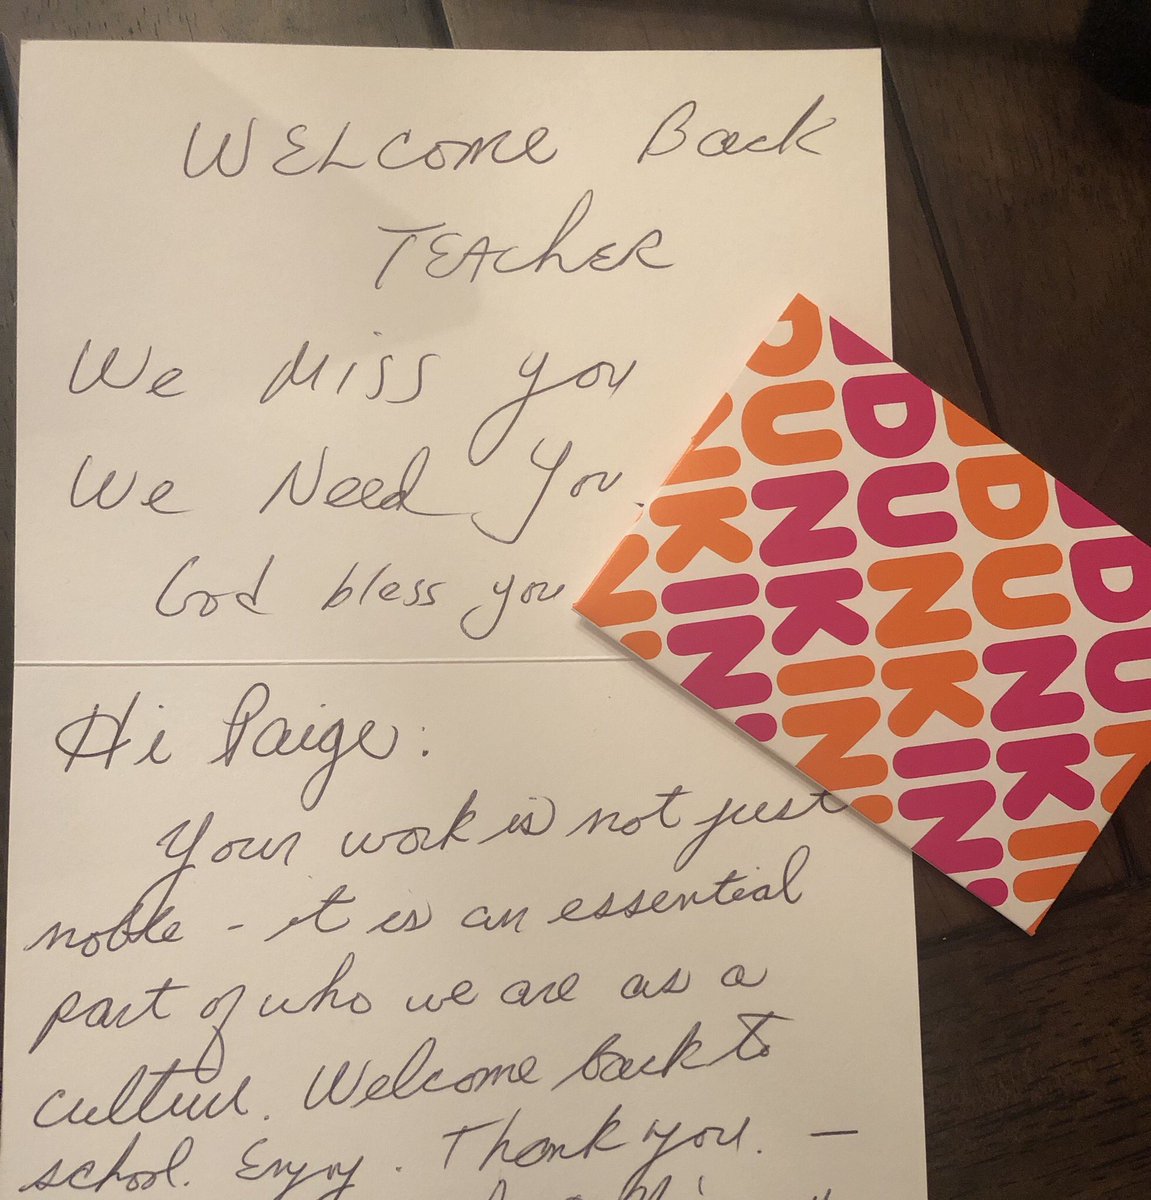 WELCOME Back
TEACHER
We Miss you
We Need You.
God bless you
Hi Paige:
Your work is not just
noble - it is an essential
part of who we are as a
culture. Welcome back to
school. Enjoy. Thank you. —
DUNKIN'
DUNKIN'
DUNKIN'
DUNKIN'